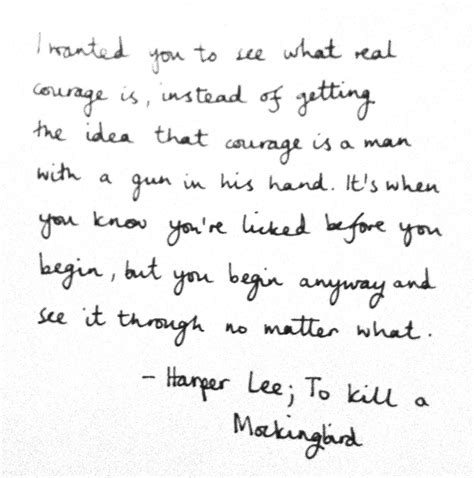 I wanted you to see what real
courage is, instead of getting
the idea that courage is a man
with a gun in his hand. It's when
you know you're licked before you
begin, but you begin anyway and
see it through no matter what.
– Harper Lee; To kill a
Mockingbird